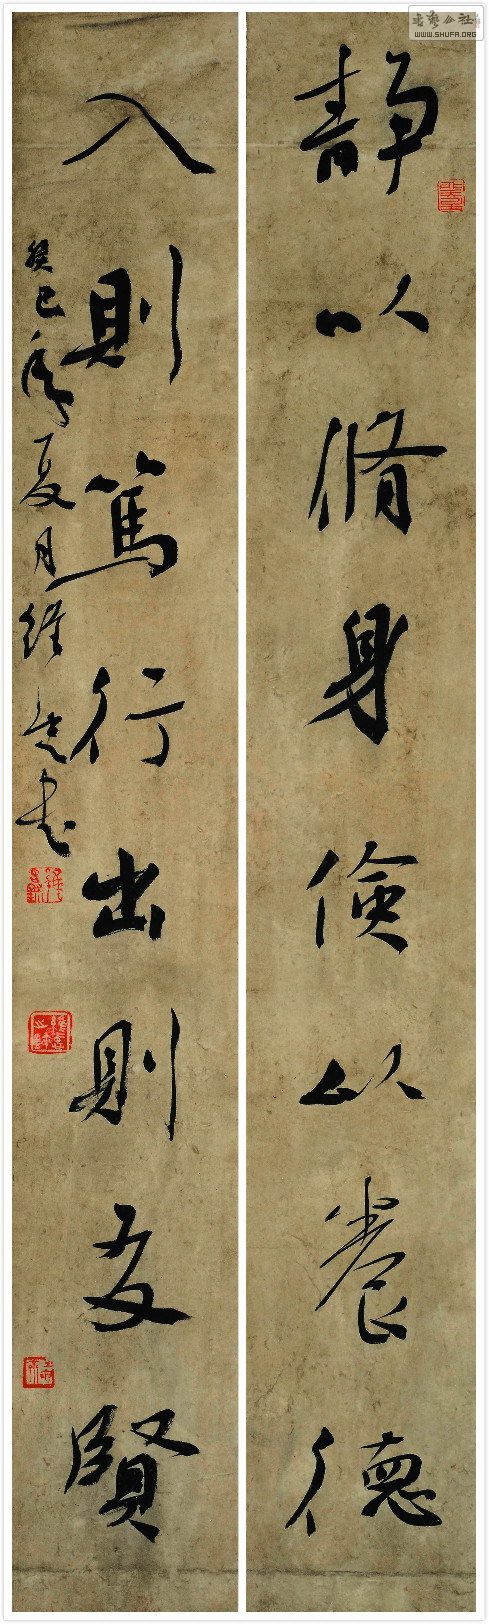 靜以脩身儉以養德
入則篤行出則友賢
癸巳年夏月經
書
書藝公社
WWW.SHUFA.ORG